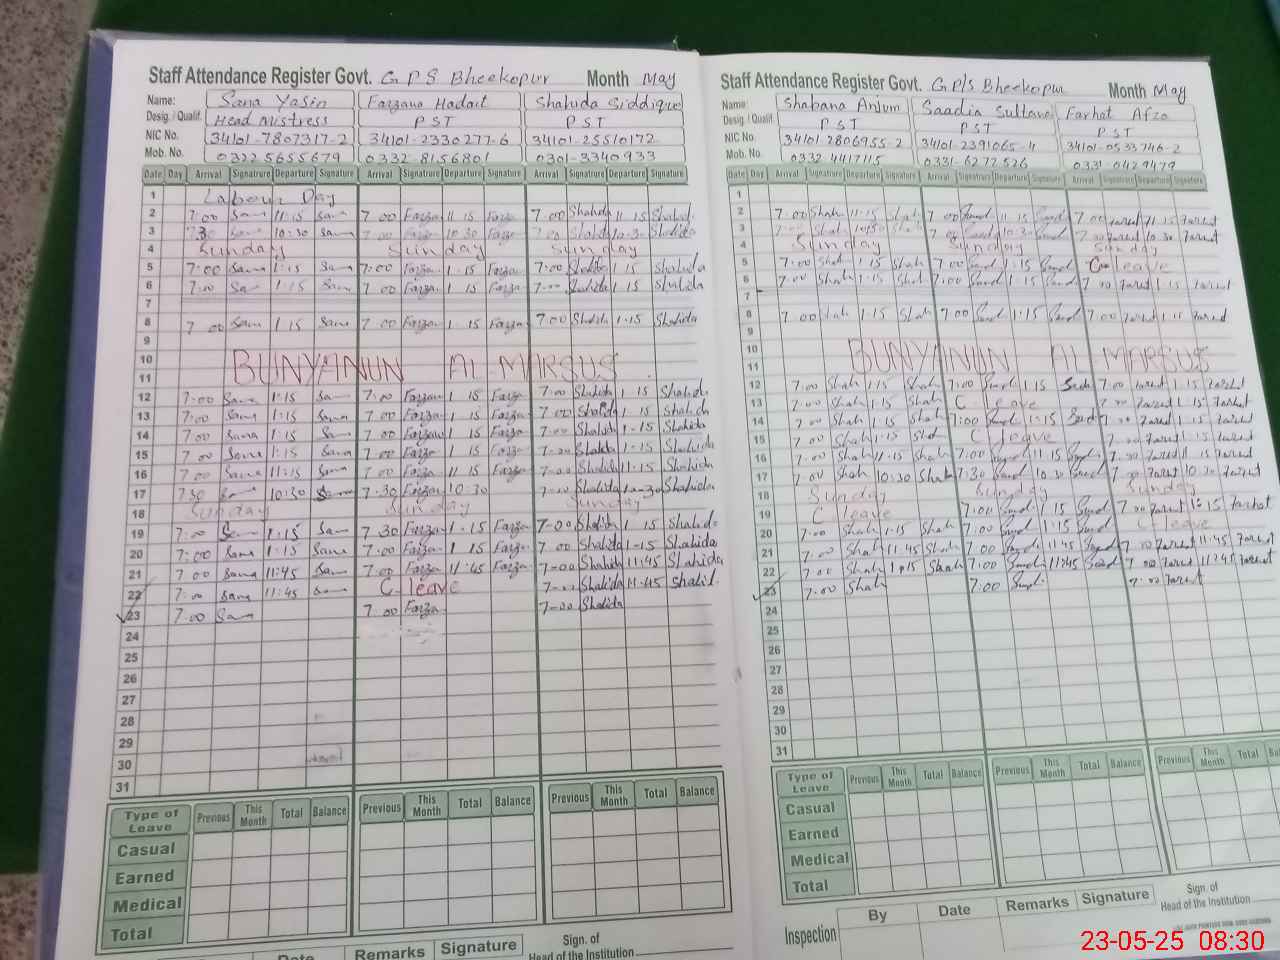 Staff Attendance Register Govt. GPS Bheekopur Month May
Name: Sana Yasin Farzana Hadait Shahida Siddique
Desig. / Qualif. Head Mistress PST PST
NIC No. 34101-7807317-2 34101-2330277-6 34101-25510172
Mob. No. 0322 5655679 0332-8156801 0301-3340933
Date Day Arrival Signatrure Departure Signature Arrival Signatrure Departure Signature Arrival Signatrure Departure Signature
1 Labour Day
2 7:00 Sana 11:15 Sana 7 00 Farza 11 15 Farza 7.00 Shahida 11 15 Shahid
3 10:30 Sana 7 00 Farza 10 30 Farza 7.00 Shahida 10-30 Shahida
4 Sunday Sunday Sunday
5 7:00 Sana 1:15 Sana 7:00 Farza 1 15 Farza 7:00 Shahida 1 15 Shahida
6 7:00 Sa 1 15 Sana 7 00 Farza 1 15 Farza 7-00 Shahida 1 15 Shahida
7
8 7 00 Sana 1 15 Sana 7 00 Farza 1 15 Farza 7:00 Shahida 1-15 Shahida
9
10 BUNYANUN AL MARSUS
11
12 7:00 Sana 1:15 Sa 7:00 Farza 1 15 Farza 7:00 Shahida 1 15 Shahid
13 7:00 Sana 1:15 Sana 7 00 Farza 1 15 Farza 7 00 Shahida 1 15 Shahida
14 7:00 Sana 1:15 Sana 7 00 Farza 1 15 Farza 7:00 Shahida 1-15 Shahida
15 7:00 Sana 1:15 Sana 7 00 Farza 1 15 Farza 7-00 Shahida 1 15 Shahida
16 7:00 Sana 11:15 Sana 7 00 Farza 11 15 Farza 7-00 Shahida 11-15 Shahida
17 7 30 Sana 10:30 Sana 7.30 Farza 10 30 7-00 Shahida 10-30 Shahida
18 Sunday Sunday Sunday
19 7:00 Sana 1:15 Sana 7.30 Farza 1.15 Farza 7-00 Shahida 1 15 Shahid
20 7:00 Sana 1:15 Sana 7.00 Farza 1 15 Farza 7 00 Shahida 1-15 Shahida
21 7 00 Sana 11:45 Sana 7 00 Farza 11:45 Farza 7-00 Shahida 11:45 Shahida
22 7:00 Sana 11:45 Sana C-leave 7-00 Shahida 11-45 Shahid
23 7.00 Sana 7 00 Farza 7-00 Shahida
24
25
26
27
28
29
30
31
Type of Leave Previous This Month Total Balance Previous This Month Total Balance Previous This Month Total Balance
Casual
Earned
Medical
Total
Date Remarks Signature Sign. of Head of the Institution
Staff Attendance Register Govt. GP/S Bheekopur Month May
Name: Shabana Anjum Saadia Sultana Farhat Afzo
Desig. / Qualif. PST PST PST
NIC No. 34101 2806955-2 34101-2391065-4 34101-0533746-2
Mob. No. 0332 4417115 0331-6277526 0331-0429479
Date Day Arrival Signatrure Departure Signature Arrival Signatrure Departure Signature Arrival Signatrure Departure Signature
1
2 7:00 Shah 11-15 Shah 7 00 11 15 7.00 Farhat 11.15 Farhat
3 Shah 7:00 10-30 7:00 Farhat 10 30 Farhat
4 Sunday Sunday Sunday
5 7:00 Shah 1 15 Shah 7:00 1:15 C-leave
6 7:00 Shah 1 15 Shah 7 00 1 15 7 00 Farhat 1 15 Farhat
7
8 7:00 Shah 1-15 Shah 7:00 1:15 7:00 Farhat 1 15 Farhat
9
10 BUNYANUN AL MARSUS
11
12 7:00 Shah 1 15 Shah 7:00 1 15 7:00 Farhat 1:15 Farhat
13 7:00 Shah 1 15 Shah C leave 7:00 Farhat 1 15 Farhat
14 7:00 Shah 1 15 Shah 7:00 1:15 7:00 Farhat 1 15 Farhat
15 7:00 Shah 1-15 Shah C leave 7:00 Farhat 1 15 Farhat
16 7:00 Shah 11-15 Shah 7:00 11:15 7:00 Farhat 11 15 Farhat
17 7:00 Shah 10:30 Shah 7:30 10 30 7:00 Farhat 10:30 Farhat
18 Sunday Sunday Sunday
19 C leave 7:00 1 15 7:00 Farhat 1:15 Farhat
20 7:00 Shah 1-15 Shah 7:00 1:15 C-leave
21 7:00 Shah 11:45 Shah 7:00 11:45 7:00 Farhat 11:45 Farhat
22 7:00 Shah Shah 7:00 11:45 7:00 Farhat 11:45 Farhat
23 7:00 Shah 7:00 7:00 Farhat
24
25
26
27
28
29
30
31
Type of Leave Previous This Month Total Balance Previous This Month Total Balance Previous This Month Total
Casual
Earned
Medical
Total
Inspection By Date Remarks Signature Sign. of Head of the Institution
23-05-25 08:30